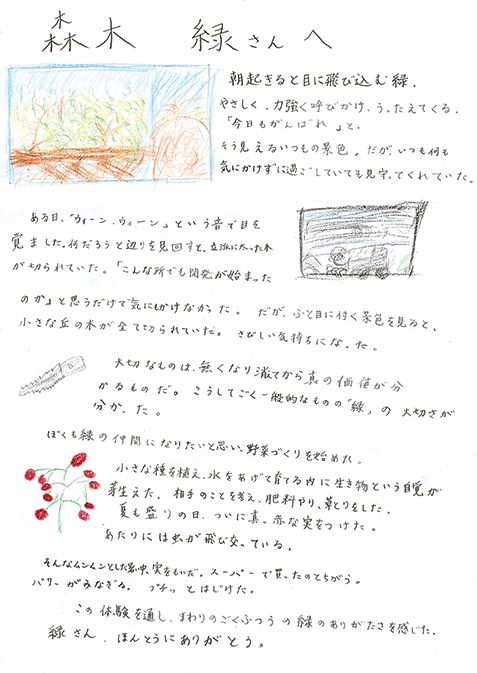 森木 緑さんへ
朝起きると目に飛び込む緑.
やさしく、力強く呼びかけ、うったえてくる.
「今日もがんばれ」と.
そう見えるいつもの景色。だが、いつも何も
気にかけずに過ごしていても見守ってくれていた。
ある日、「ウィーン、ウィーン」という音で目を
覚ました。何だろうと辺りを見回すと、立派にたった木
が切られていた。「こんな所でも開発が始まった
のか」と思うだけで気にもかけなかった。だが、ふと目に付く景色を見ると、
小さな丘の木が全て切られていた。さびしい気持ちになった。
大切なものは、無くなり減ってから真の価値が分
かるものだ。こうしてごく一般的なものの「緑」の大切さが
分かった。
ぼくも緑の仲間になりたいと思い、野菜づくりを始めた。
小さな種を植え、水をあげて育てる内に生き物という自覚が
芽生えた。相手のことを考え、肥料やり、草とりをした.
夏も盛りの日、ついに真っ赤な実をつけた。
あたりには虫が飛び交っている.
そんなムンムンとした暑い中、実をもいだ。スーパーで買ったのとちがう。
パワーがみなぎる。プチッとはじけた。
この体験を通し、まわりのごくふつうの緑のありがたさを感じた.
緑さん、ほんとうにありがとう。